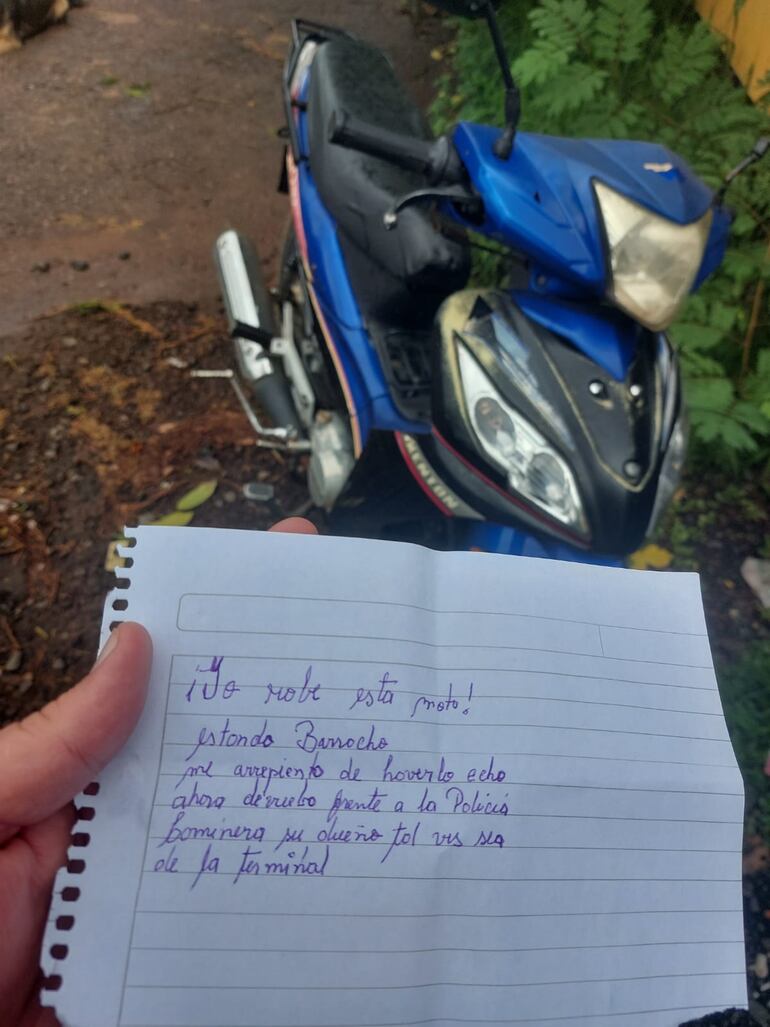 KENTON
¡Yo robe esta moto!
estando Borrocho
me arrepiento de hoverlo echo
ahora devuelbo frente a la Policia
Cominera su dueño tol ves sea
de la terminal